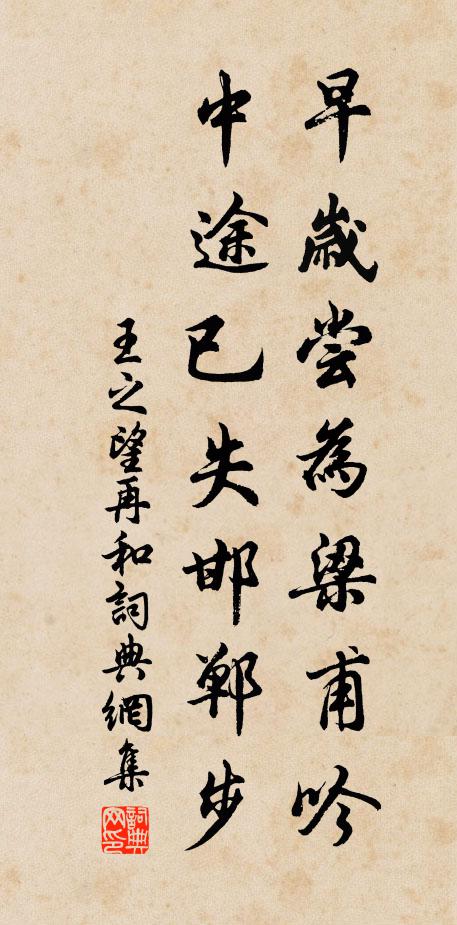 早歲嘗為梁甫吟
中途已失邯鄲步
王之望再和詞典網集
詞典網印